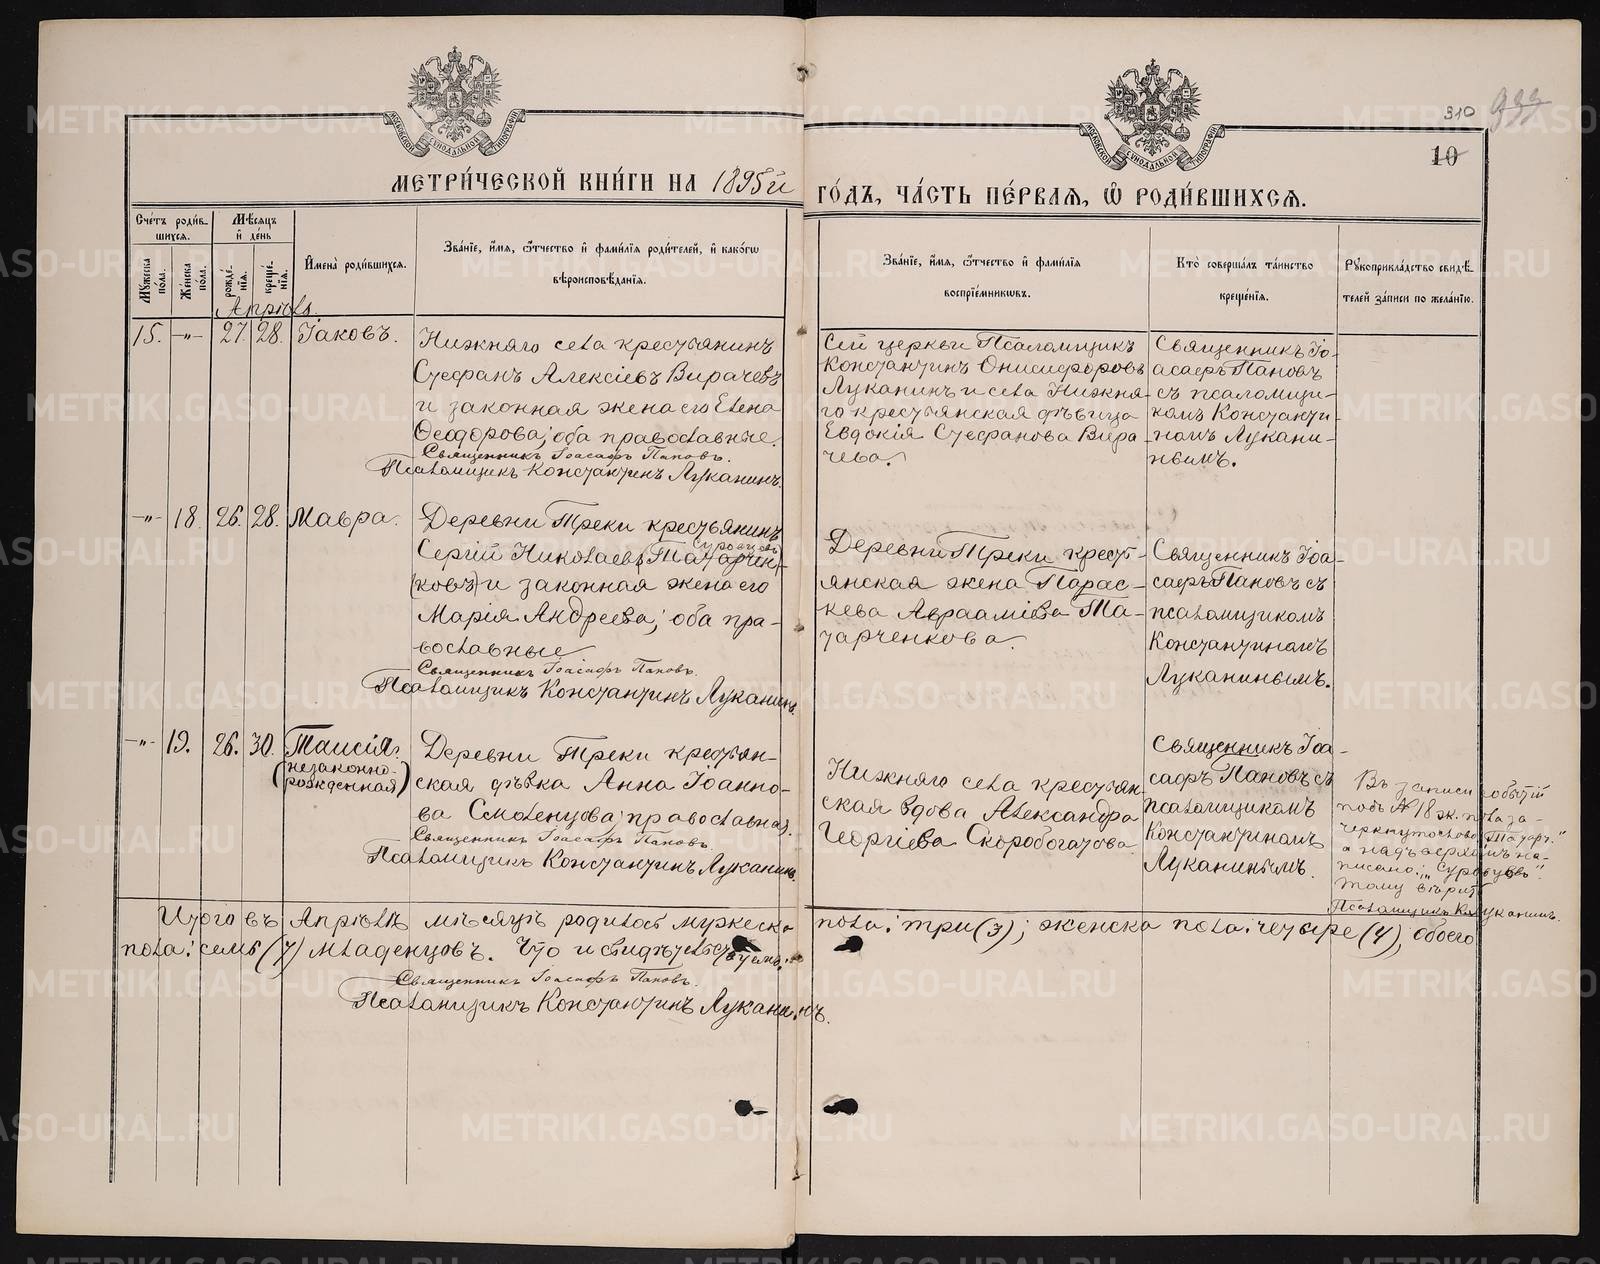 310 933
10
МОСКОВСКОЙ СѴНОДАЛЬНОЙ ТИПОГРАФІИ
МОСКОВСКОЙ СѴНОДАЛЬНОЙ ТИПОГРАФІИ
МЕТРИ́ЧЕСКОЙ КНИ́ГИ НА 1895й ГО́ДЪ, ЧА́СТЬ ПЕ́РВАЯ, Ѡ҆ РОДИ́ВШИХСЯ.
Сче́тъ роди́в-
шихся.
Мѣсяцъ
и҆ де́нь
Мꙋжеска по́ла.
Же́нска по́ла.
рожде́нїя.
креще́нїя.
И҆мена̀ роди́вшихся.
Зва́нїе, и҆́мя, ѻ҆́тчество и҆ фами́лїя роди́телей, и҆ како́гѡ
вѣроисповѣ́данїя.
Зва́нїе, и҆́мя, ѻ҆́тчество и҆ фами́лїя
воспрїе́мникѡвъ.
Кто̀ соверша́лъ та́инство
креще́нїя.
Рꙋкоприкла́дство свидѣ́-
телей за́писи по жела́нїю.
Апрѣль.
15. -"- 27. 28. Іаковъ.
Нижняго села крестьянинъ
Стефанъ Алексіевъ Вирачевъ
и законная жена его Елена
Ѳеодорова; оба православные.
Священникъ Іоасафъ Пановъ.
Псаломщикъ Константинъ Луканинъ.
Сей церкви Псаломщикъ
Константинъ Онисифоровъ
Луканинъ и села Нижня-
го крестьянская дѣвица
Евдокія Стефанова Вира-
чева.
Священникъ Іо-
асафъ Пановъ
съ псаломщи-
комъ Константи-
номъ Лукани-
нымъ.
-"- 18. 26. 28. Мавра.
Деревни Треки крестьянинъ
Суровцевъ
Сергій Николаевъ (Татарчен-
ковъ) и законная жена его
Марія Андреева; оба пра-
вославные
Священникъ Іоасафъ Пановъ.
Псаломщикъ Константинъ Луканинъ.
Деревни Треки крест-
янская жена Парас-
кева Авраамiева Та-
тарченкова.
Священникъ Іоа-
сафъ Пановъ съ
псаломщикомъ
Константиномъ
Луканинымъ.
-"- 19. 26. 30. Таисія.
(незаконно-
рожденная)
Деревни Треки крестьян-
ская дѣвка Анна Іоанно-
ва Смоленцова; православная.
Священникъ Іоасафъ Пановъ.
Псаломщикъ Константинъ Луканинъ.
Нижняго села крестьян-
ская вдова Александра
Георгіева Скоробогатова.
Священникъ Іоа-
сафъ Пановъ съ
псаломщикомъ
Константиномъ
Луканинымъ.
Въ записи событій
подъ № 18 ж. пола за-
черкнуто слово „Татар."
а надъ верхомъ на-
писано: „Суровцевъ".
Тому вѣрить
Псаломщикъ К. Луканинъ.
Итого въ Апрѣлѣ мѣсяцѣ родилось мужеска пола: три (3); женска пола: четыре (4); обоего
пола: семь (7) младенцовъ. Что и свидѣтельствуемъ:
Священникъ Іоасафъ Пановъ.
Псаломщикъ Константинъ Луканинъ.
METRIKI.GASO-URAL.RU